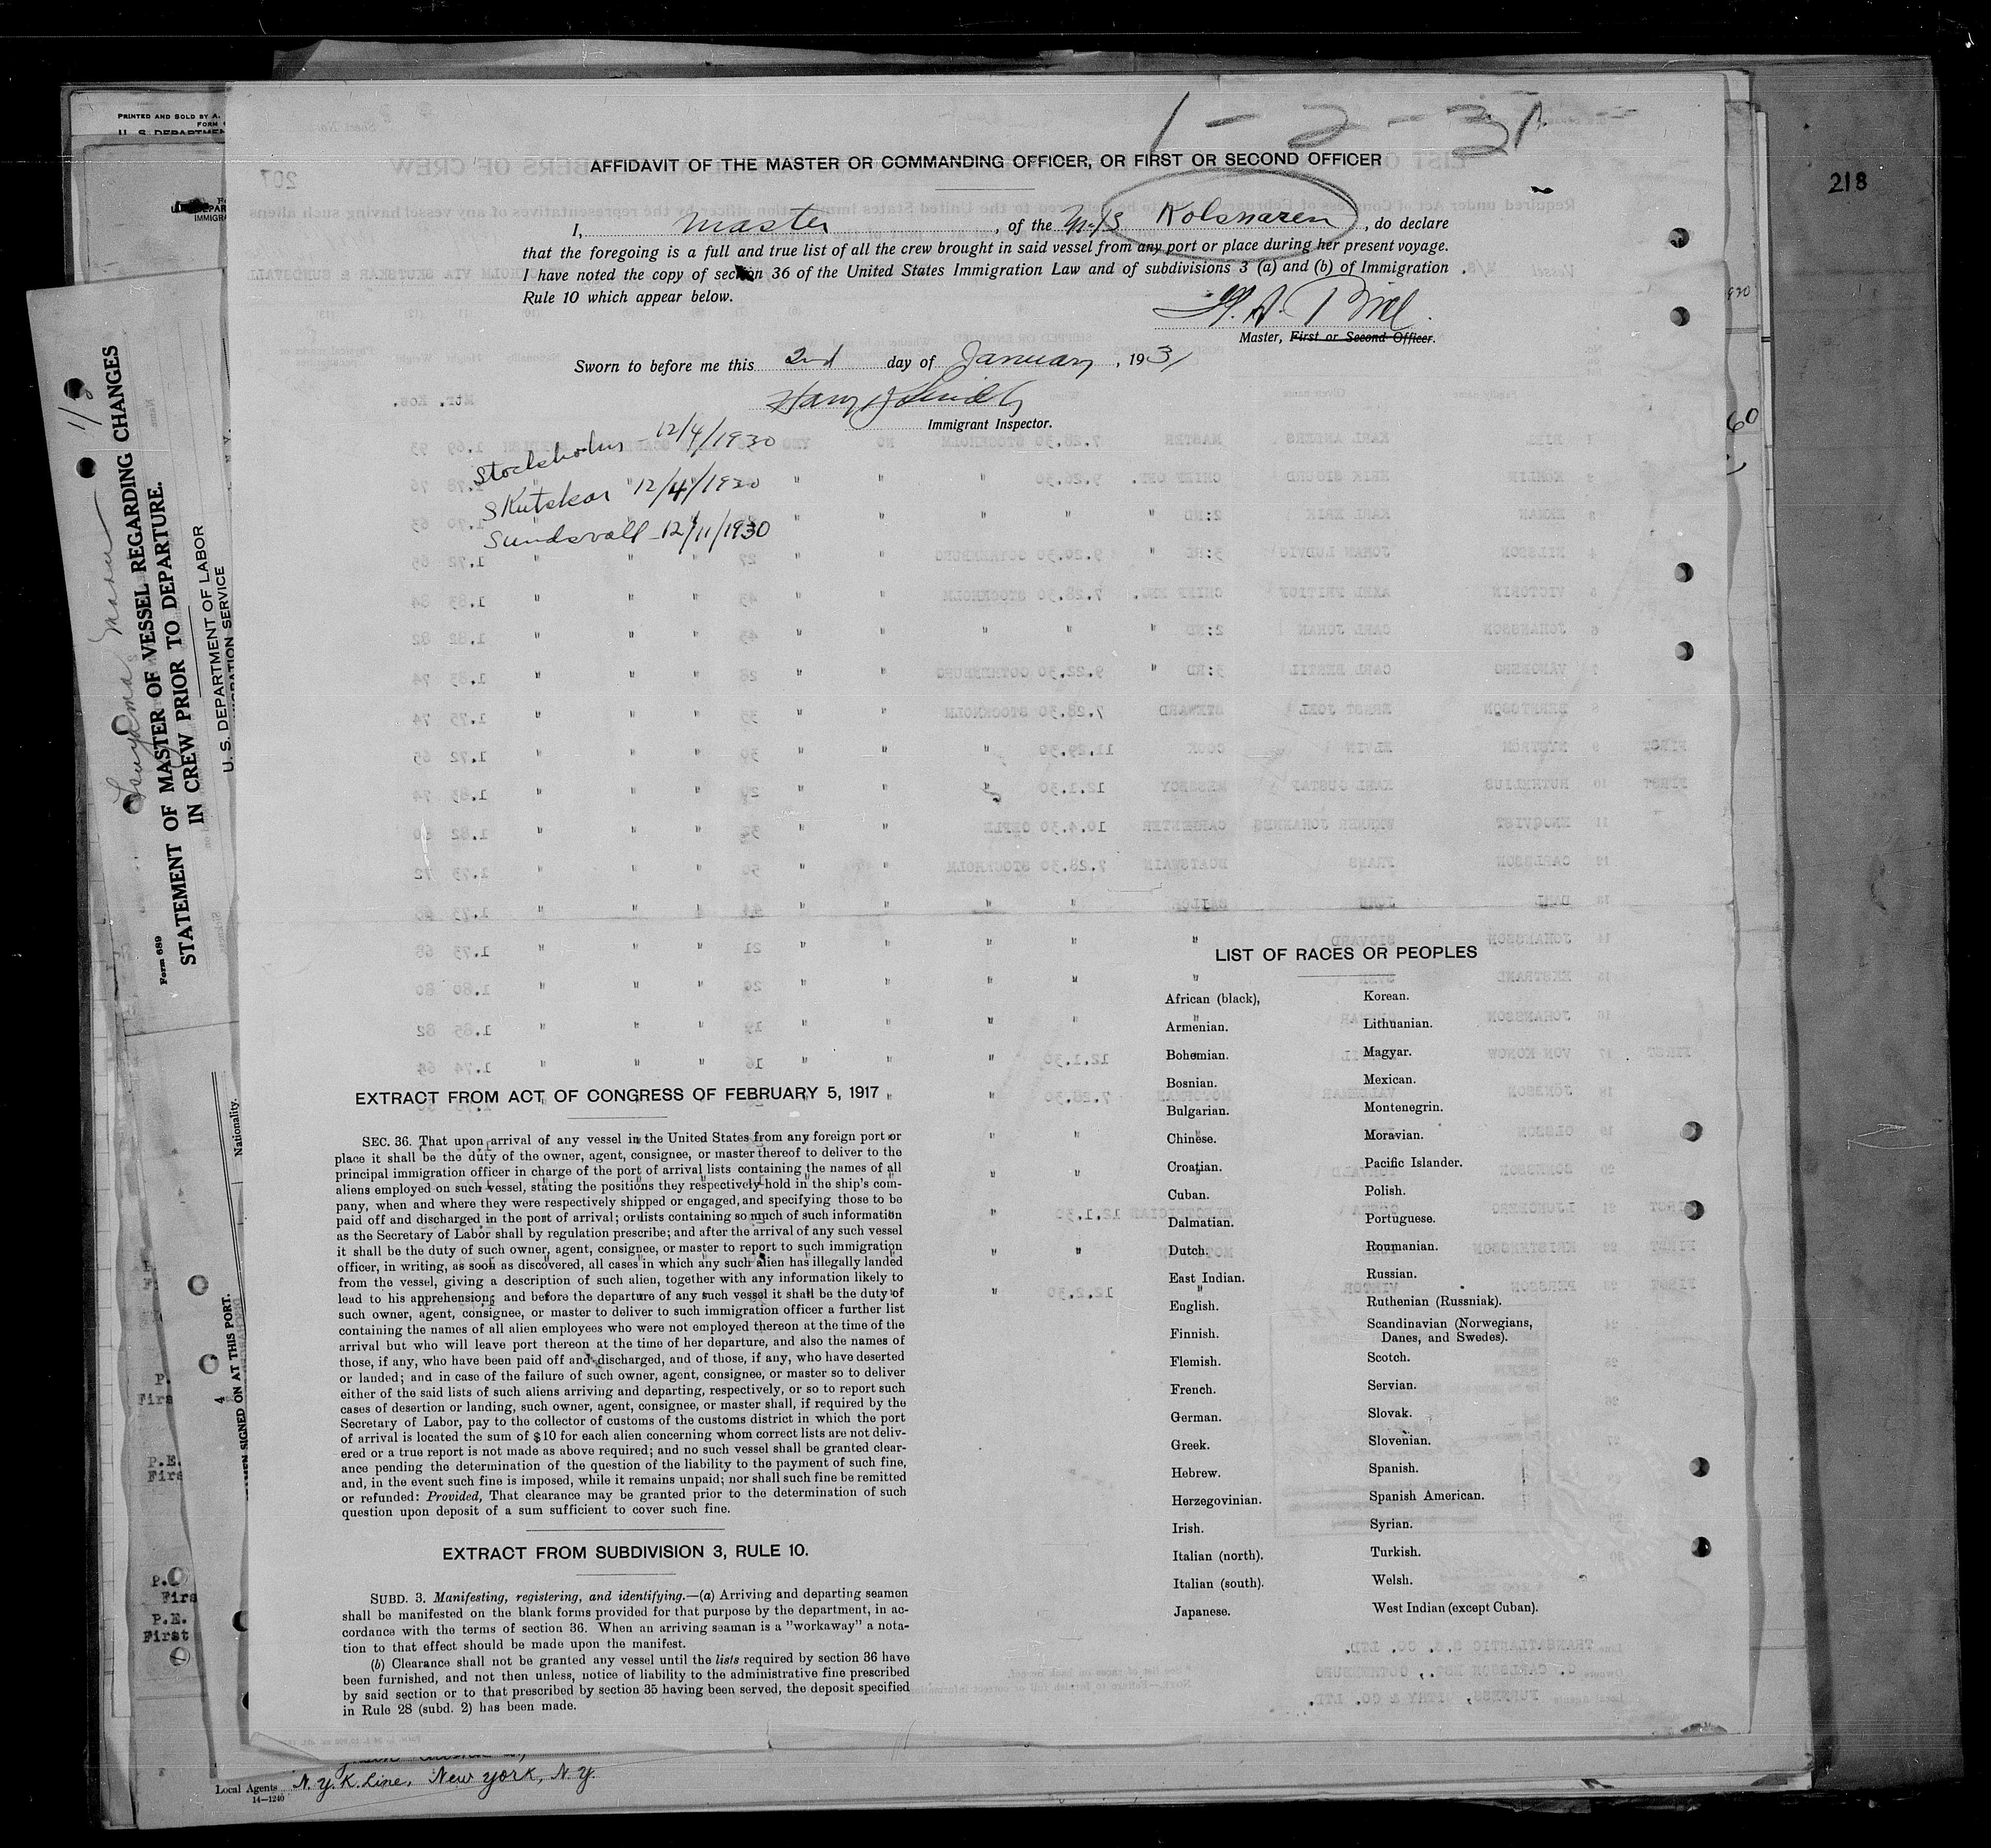 1 - 2 - 31
AFFIDAVIT OF THE MASTER OR COMMANDING OFFICER, OR FIRST OR SECOND OFFICER
I, Master, of the M/S Kolsnaren, do declare
that the foregoing is a full and true list of all the crew brought in said vessel from any port or place during her present voyage.
I have noted the copy of section 36 of the United States Immigration Law and of subdivisions 3 (a) and (b) of Immigration
Rule 10 which appear below.
Master, First or Second Officer.
Sworn to before me this 2nd day of January, 1931
Immigrant Inspector.
Stockholm - 12/4/1930
Skutskar " 12/4/1930
Sundsvall - 12/11/1930
LIST OF RACES OR PEOPLES
African (black),
Armenian.
Bohemian.
Bosnian.
Bulgarian.
Chinese.
Croatian.
Cuban.
Dalmatian.
Dutch.
East Indian.
English.
Finnish.
Flemish.
French.
German.
Greek.
Hebrew.
Herzegovinian.
Irish.
Italian (north).
Italian (south).
Japanese.
Korean.
Lithuanian.
Magyar.
Mexican.
Montenegrin.
Moravian.
Pacific Islander.
Polish.
Portuguese.
Roumanian.
Russian.
Ruthenian (Russniak).
Scandinavian (Norwegians,
Danes, and Swedes).
Scotch.
Servian.
Slovak.
Slovenian.
Spanish.
Spanish American.
Syrian.
Turkish.
Welsh.
West Indian (except Cuban).
EXTRACT FROM ACT OF CONGRESS OF FEBRUARY 5, 1917
SEC. 36. That upon arrival of any vessel in the United States from any foreign port or
place it shall be the duty of the owner, agent, consignee, or master thereof to deliver to the
principal immigration officer in charge of the port of arrival lists containing the names of all
aliens employed on such vessel, stating the positions they respectively hold in the ship's com-
pany, when and where they were respectively shipped or engaged, and specifying those to be
paid off and discharged in the port of arrival; or lists containing so much of such information
as the Secretary of Labor shall by regulation prescribe; and after the arrival of any such vessel
it shall be the duty of such owner, agent, consignee, or master to report to such immigration
officer, in writing, as soon as discovered, all cases in which any such alien has illegally landed
from the vessel, giving a description of such alien, together with any information likely to
lead to his apprehension; and before the departure of any such vessel it shall be the duty of
such owner, agent, consignee, or master to deliver to such immigration officer a further list
containing the names of all alien employees who were not employed thereon at the time of the
arrival but who will leave port thereon at the time of her departure, and also the names of
those, if any, who have been paid off and discharged, and of those, if any, who have deserted
or landed; and in case of the failure of such owner, agent, consignee, or master so to deliver
either of the said lists of such aliens arriving and departing, respectively, or so to report such
cases of desertion or landing, such owner, agent, consignee, or master shall, if required by the
Secretary of Labor, pay to the collector of customs of the customs district in which the port
of arrival is located the sum of $10 for each alien concerning whom correct lists are not deliv-
ered or a true report is not made as above required; and no such vessel shall be granted clear-
ance pending the determination of the question of the liability to the payment of such fine,
and, in the event such fine is imposed, while it remains unpaid; nor shall such fine be remitted
or refunded: Provided, That clearance may be granted prior to the determination of such
question upon deposit of a sum sufficient to cover such fine.
EXTRACT FROM SUBDIVISION 3, RULE 10.
SUBD. 3. Manifesting, registering, and identifying.—(a) Arriving and departing seamen
shall be manifested on the blank forms provided for that purpose by the department, in ac-
cordance with the terms of section 36. When an arriving seaman is a "workaway" a nota-
tion to that effect should be made upon the manifest.
(b) Clearance shall not be granted any vessel until the lists required by section 36 have
been furnished, and not then unless, notice of liability to the administrative fine prescribed
by said section or to that prescribed by section 35 having been served, the deposit specified
in Rule 28 (subd. 2) has been made.
218
PRINTED AND SOLD BY A.
FORM
U. S. DEPARTMEN
Form 689
STATEMENT OF MASTER OF VESSEL REGARDING CHANGES
IN CREW PRIOR TO DEPARTURE.
U. S. DEPARTMENT OF LABOR
IMMIGRATION SERVICE
Nationality.
SIGNED ON AT THIS PORT.
P.
Firs
P.E.
Firs
Firs
P.E.
First
Local Agents N. Y. K. Line, New York, N. Y.
14—1240